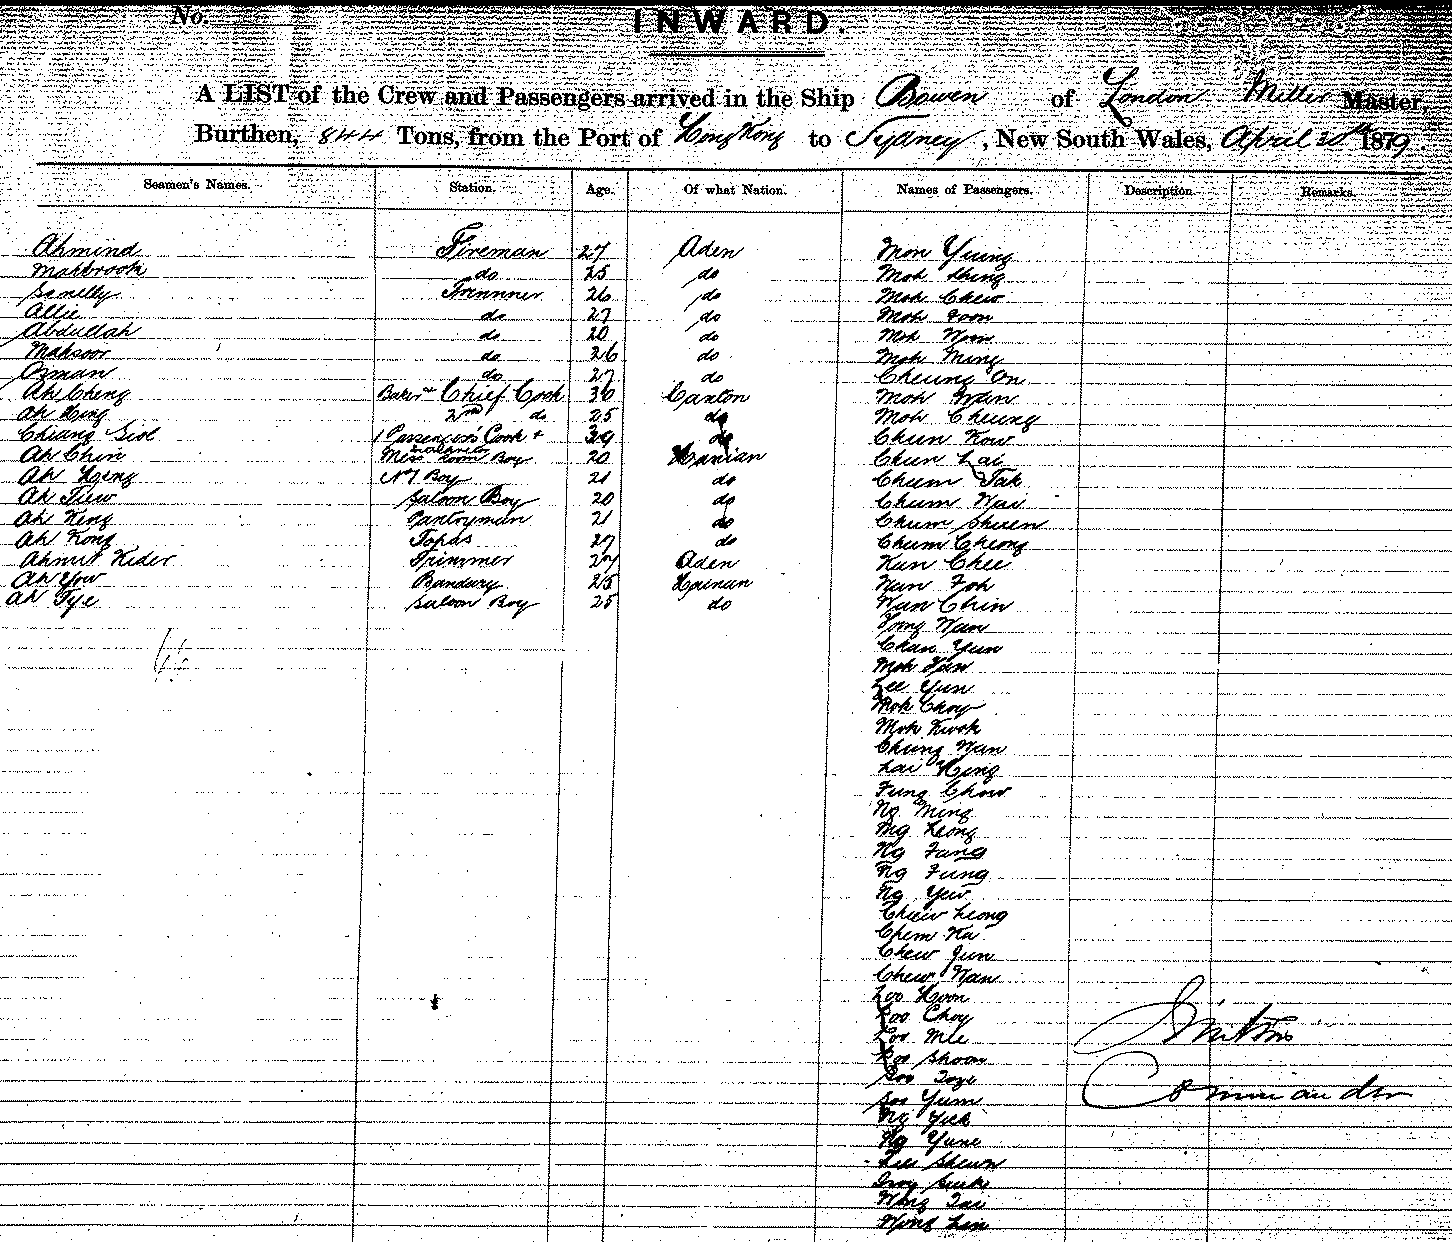 No.
INWARD.
A LIST of the Crew and Passengers arrived in the Ship Bowen of London Miller Master,
Burthen, 844 Tons, from the Port of Hong Kong to Sydney, New South Wales, April 30th 1879.
Seamen's Names. Station. Age. Of what Nation. Names of Passengers. Description. Remarks.
Ahmind Fireman 27 Aden Mon Yeung
Mahbrook do 25 do Moh Shing
Samelly Trimmer 26 do Moh Chew
Allie do 27 do Moh Foon
Abdullah do 20 do Moh Wom
Mahsoor do 26 do Moh Ming
Ozman do 27 do Cheung On
Ah Cheng Baker & Chief Cook 30 Canton Moh Wan
Ah Hing 2nd do 25 do Moh Cheung
Chiang Giol 1 Passenger's Cook + 39 do Chun Kow
Ah Chin Mess Room Boy 20 Hanian Chun Lai
Ah Heng No 1 Boy 21 do Chum Tak
Ah Tiew Saloon Boy 20 do Chum Wai
Ah Keng Pantryman 21 do Chum Shuen
Ah Kong Topas 27 do Chum Cheong
Ahmut Kider Trimmer 27 Aden Kun Chee
Ah You Bandary 25 Hainan Wan Foh
Ah Tye Saloon Boy 25 do Wan Chin
Wan
Chan Yun
Moh Wan
Lee Yun
Moh Choy
Moh Kwok
Chung Wan
Lai Hing
Fung Chow
Ng Ming
Ng Leong
Ng Fang
Ng Fung
Ng Yew
Chew Leong
Chem Ka
Chew Jun
Chew Wan
Loo Hoon
Loo Choy
Loo Mee
Loo Shoon
Soo
Soo Yum
Ng Yick
Ng Yune
Shewn
Wong
Wong Lin
Commander